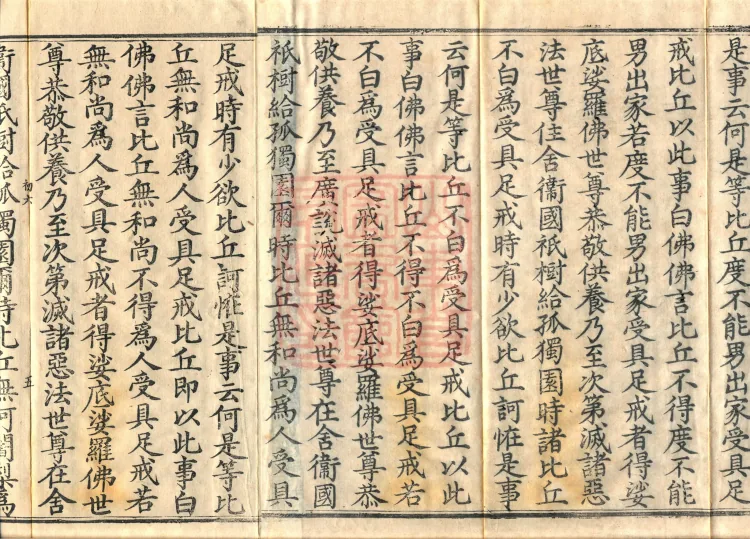 是事云何是等比丘度不能男出家受具足
戒比丘以此事白佛佛言比丘不得度不能
男出家若度不能男出家受具足戒者得娑
底娑羅佛世尊恭敬供養乃至次第滅諸惡
法世尊住舍衛國祇樹給孤獨園時諸比丘
不白爲受具足戒時有少欲比丘訶恠是事
云何是等比丘不白爲受具足戒比丘以此
事白佛佛言比丘不得不白爲受具足戒若
不白爲受具足戒者得娑底娑羅佛世尊恭
敬供養乃至廣說滅諸惡法世尊在舍衞國
祇樹給孤獨園爾時比丘無和尚爲人受具
足戒時有少欲比丘訶恠是事云何是等比
丘無和尚爲人受具足戒比丘即以此事白
佛佛言比丘無和尚不得爲人受具足戒若
無和尚爲人受具足戒者得娑底娑羅佛世
尊恭敬供養乃至次第滅諸惡法世尊在舍
五
衞國祇樹給孤獨園爾時比丘無阿闍梨爲